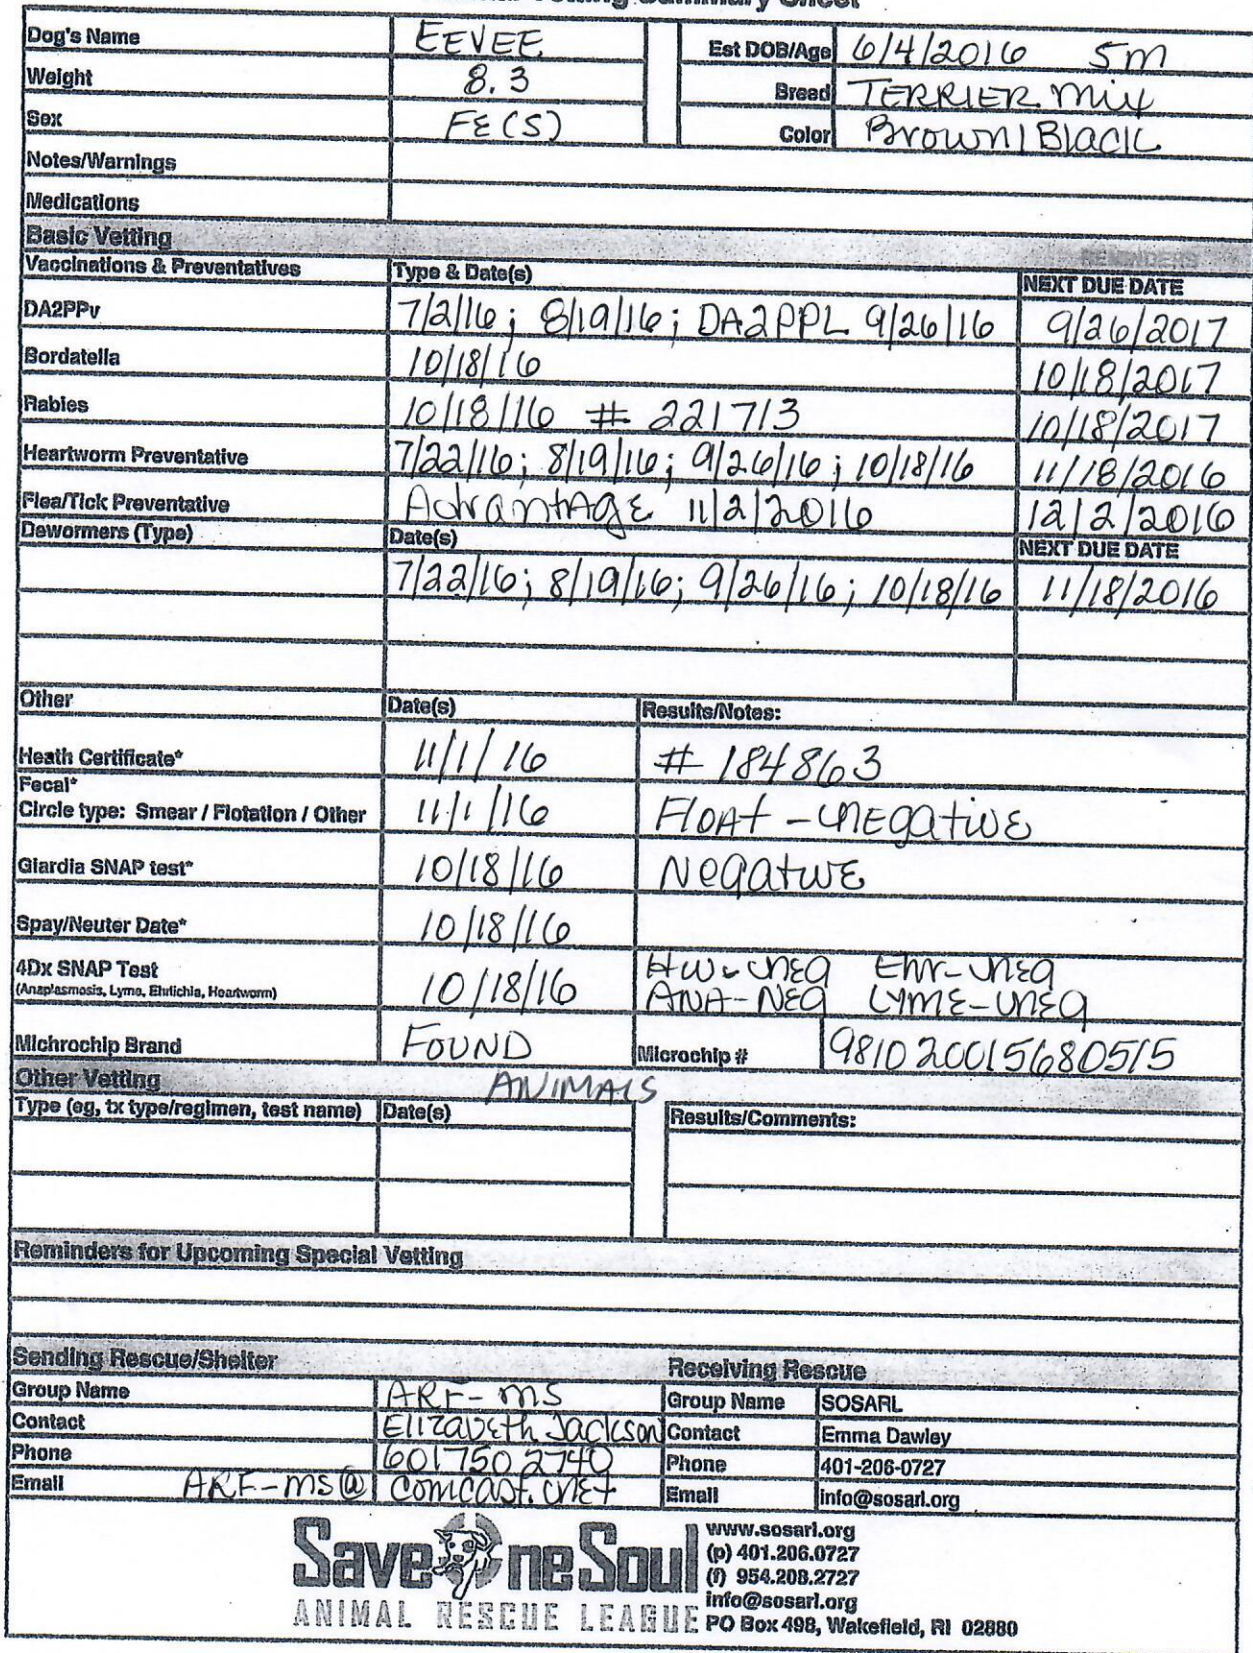 Vetting Summary Sheet
Dog's Name EEVEE Est DOB/Age 6/4/2016 5m
Weight 8.3 Breed TERRIER mix
Sex FE(S) Color Brown/Black
Notes/Warnings
Medications
Basic Vetting REMINDERS
Vaccinations & Preventatives Type & Date(s) NEXT DUE DATE
DA2PPv 7/2/16; 8/19/16; DA2PPL 9/26/16 9/26/2017
Bordatella 10/18/16 10/18/2017
Rabies 10/18/16 # 221713 10/18/2017
Heartworm Preventative 7/22/16; 8/19/16; 9/26/16; 10/18/16 11/18/2016
Flea/Tick Preventative AdvantAgE 11/2/2016 12/2/2016
Dewormers (Type) Date(s) NEXT DUE DATE
7/22/16; 8/19/16; 9/26/16; 10/18/16 11/18/2016
Other Date(s) Results/Notes:
Heath Certificate* 11/1/16 # 184863
Fecal*
Circle type: Smear / Flotation / Other 11/1/16 FloAt - nEgativE
Giardia SNAP test* 10/18/16 NegativE
Spay/Neuter Date* 10/18/16
4Dx SNAP Test 10/18/16 HW- nEg Ehr- nEg
(Anaplasmosis, Lyme, Ehrlichia, Heartworm) ANA- NEg LYME- nEg
Michrochip Brand FOUND Microchip # 981020015680515
Other Vetting ANIMALS
Type (eg, tx type/regimen, test name) Date(s) Results/Comments:
Reminders for Upcoming Special Vetting
Sending Rescue/Shelter Receiving Rescue
Group Name ARF-mS Group Name SOSARL
Contact ElizabEth Jackson Contact Emma Dawley
Phone 601 750 2740 Phone 401-206-0727
Email ARF-mS@comcast.nEt Email info@sosarl.org
Save One Soul www.sosarl.org
(p) 401.206.0727
(f) 954.208.2727
info@sosarl.org
ANIMAL RESCUE LEAGUE PO Box 498, Wakefield, RI 02880